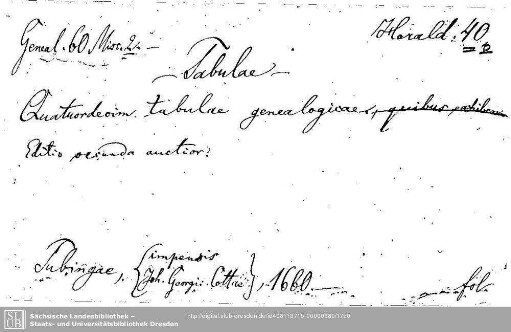 Geneal. 60. Misc. 2. —
Herald. 40
— Tabulae —
Quatuordecim tabulae genealogicae, quibus exhibentur
Editio secunda auctior.
Tubingae, {impensis
Joh. Georgii Cottae}, 1660. — fol.
Sächsische Landesbibliothek –
Staats- und Universitätsbibliothek Dresden